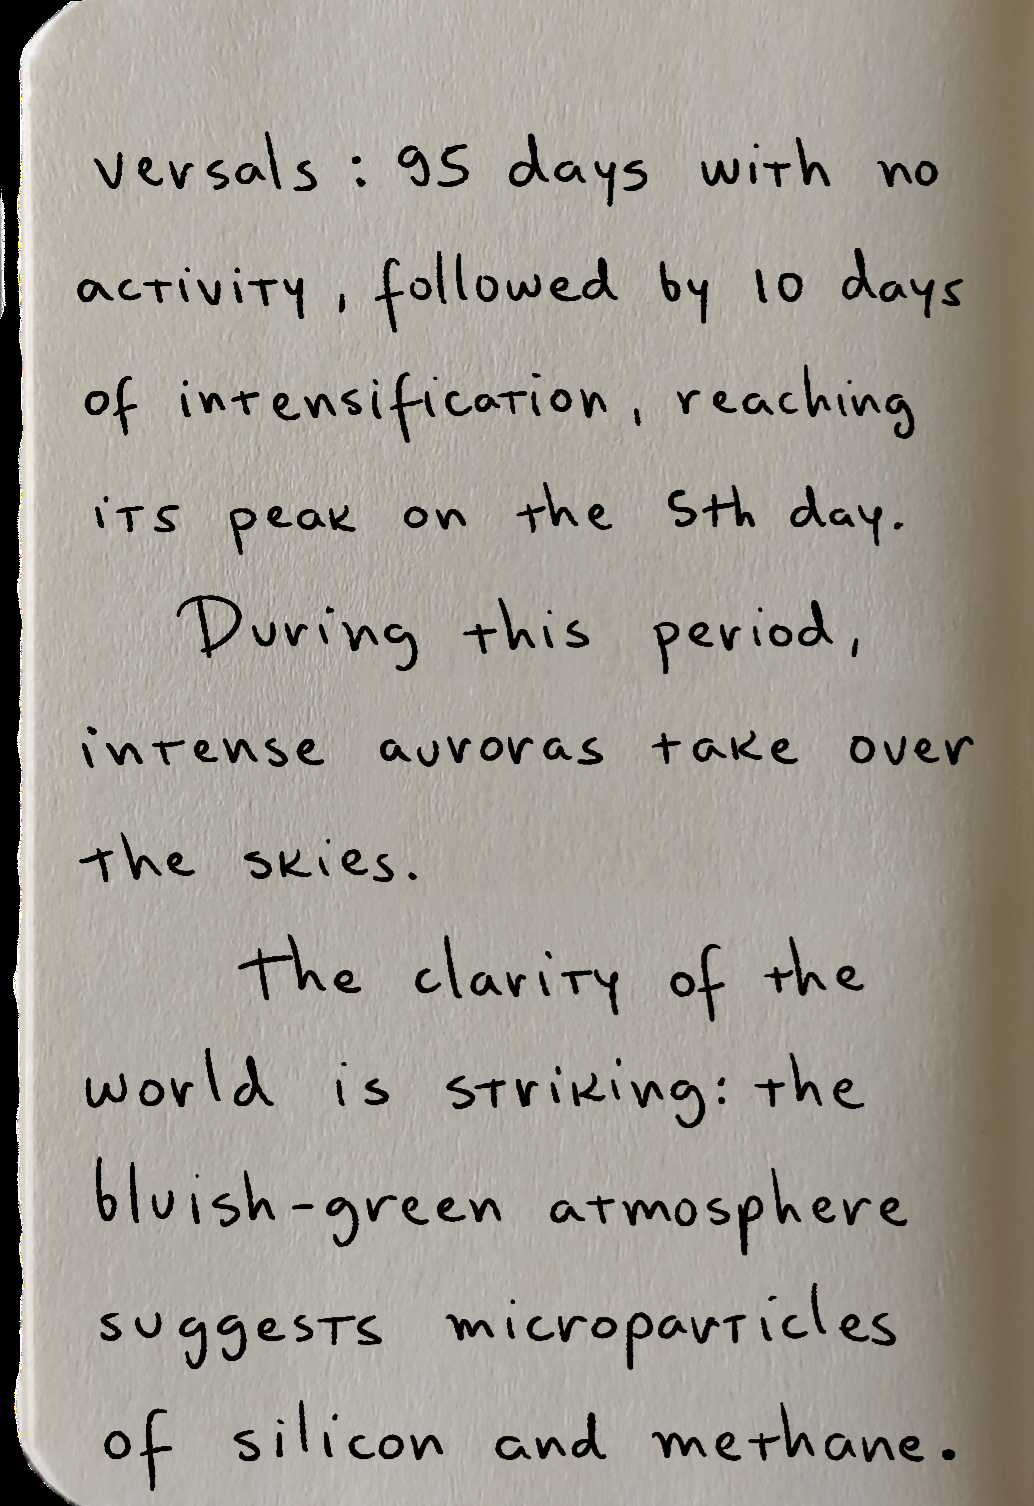 versals: 95 days with no
activity, followed by 10 days
of intensification, reaching
its peak on the 5th day.
During this period,
intense auroras take over
the skies.
The clarity of the
world is striking: the
bluish-green atmosphere
suggests microparticles
of silicon and methane.